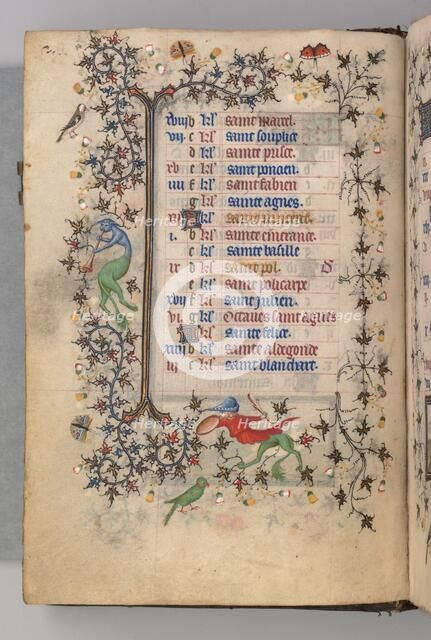 xviij b kł saint marcel.
vij c kł saint souplice
d kł sainte prisce.
xv e kł saint poncien.
iiij f kł saint fabien
g kł sainte agnes.
kł saint vincent.
i. b kł sainte emerance.
c kł sainte basille
ix d kł saint pol.
e kł saint policarpe
xvij f kł saint julien.
vi g kł Octaues saint agnes
kł sainte felice.
xiiij b kł sainte aldegonde
iij c kł saint blanchart.
Heritage
Heritage
Heritage
Heritage
Heritage